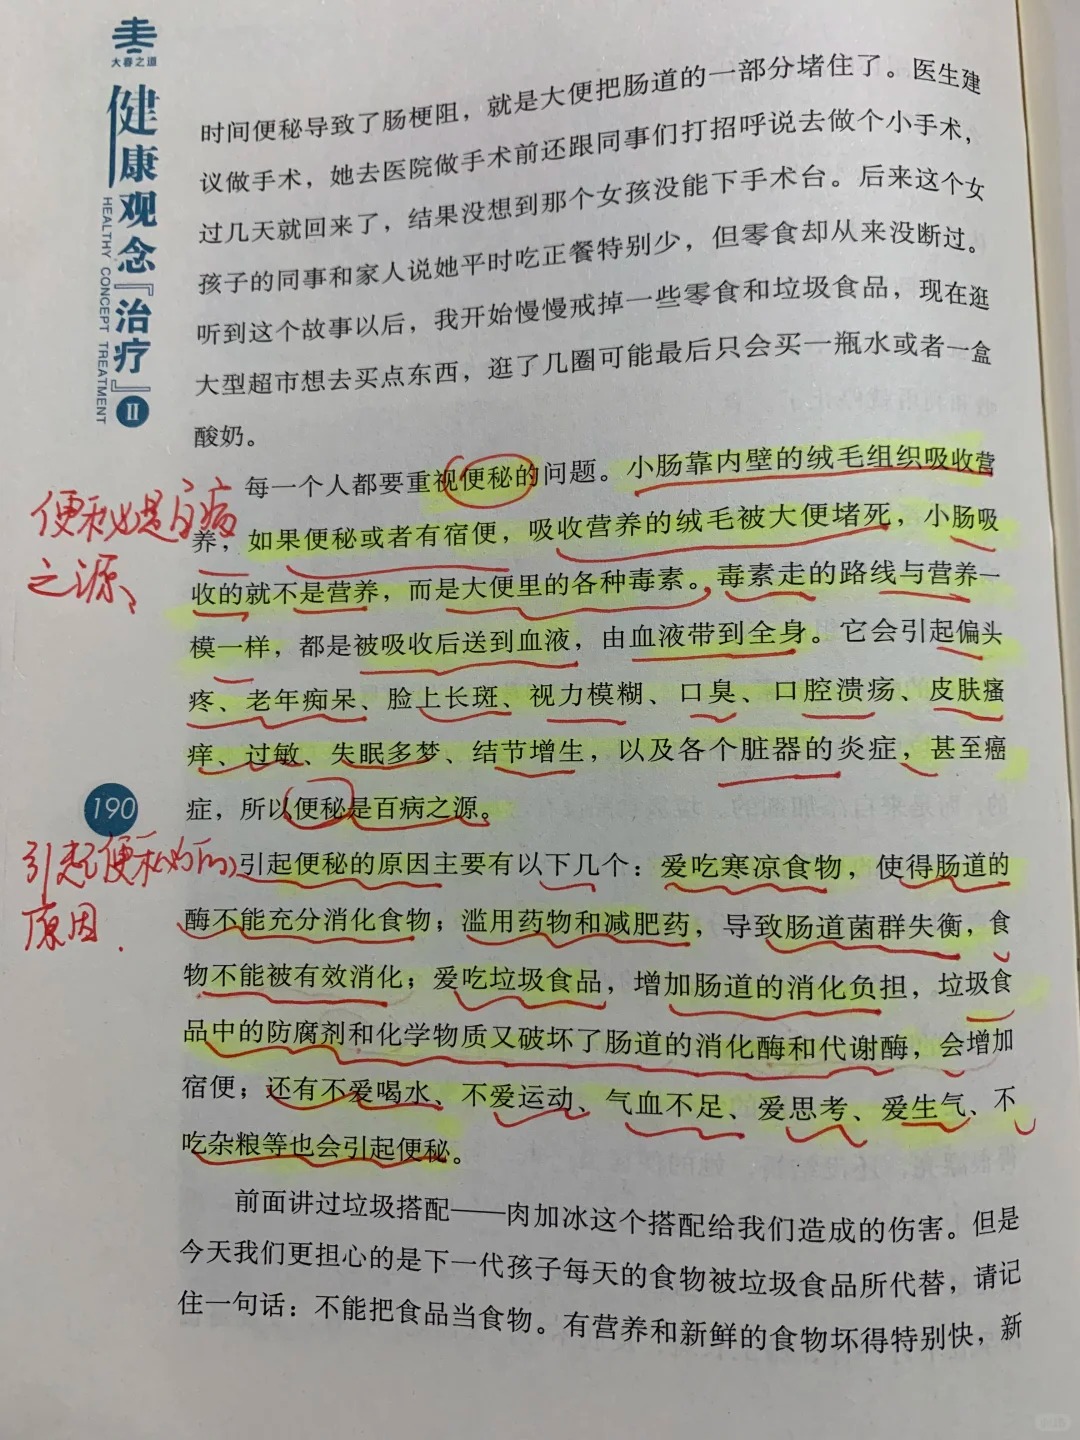 大春之道
健康观念『治疗』II
HEALTHY CONCEPT TREATMENT
时间便秘导致了肠梗阻，就是大便把肠道的一部分堵住了。医生建
议做手术，她去医院做手术前还跟同事们打招呼说去做个小手术，
过几天就回来了，结果没想到那个女孩没能下手术台。后来这个女
孩子的同事和家人说她平时吃正餐特别少，但零食却从来没断过。
听到这个故事以后，我开始慢慢戒掉一些零食和垃圾食品，现在逛
大型超市想去买点东西，逛了几圈可能最后只会买一瓶水或者一盒
酸奶。
每一个人都要重视便秘的问题。小肠靠内壁的绒毛组织吸收营
养，如果便秘或者有宿便，吸收营养的绒毛被大便堵死，小肠吸
收的就不是营养，而是大便里的各种毒素。毒素走的路线与营养一
模一样，都是被吸收后送到血液，由血液带到全身。它会引起偏头
疼、老年痴呆、脸上长斑、视力模糊、口臭、口腔溃疡、皮肤瘙
痒、过敏、失眠多梦、结节增生，以及各个脏器的炎症，甚至癌
症，所以便秘是百病之源。
便秘是百病
之源、
190
引起便秘的
原因.
引起便秘的原因主要有以下几个：爱吃寒凉食物，使得肠道的
酶不能充分消化食物；滥用药物和减肥药，导致肠道菌群失衡，食
物不能被有效消化；爱吃垃圾食品，增加肠道的消化负担，垃圾食
品中的防腐剂和化学物质又破坏了肠道的消化酶和代谢酶，会增加
宿便；还有不爱喝水、不爱运动、气血不足、爱思考、爱生气、不
吃杂粮等也会引起便秘。
前面讲过垃圾搭配——肉加冰这个搭配给我们造成的伤害。但是
今天我们更担心的是下一代孩子每天的食物被垃圾食品所代替，请记
住一句话：不能把食品当食物。有营养和新鲜的食物坏得特别快，新